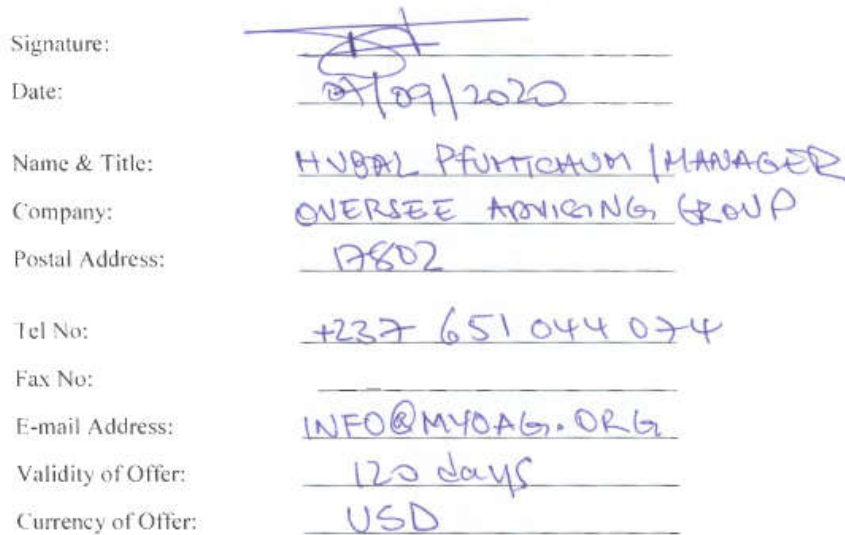 Signature:
Date: 07/09/2020
Name & Title: HUBAL PFUMTCHUM / MANAGER
Company: OVERSEE ADVISING GROUP
Postal Address: 17802
Tel No: +237 651 044 074
Fax No:
E-mail Address: INFO@MYOAG.ORG
Validity of Offer: 120 days
Currency of Offer: USD